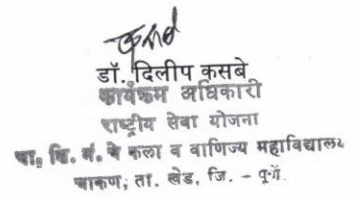 डॉ. दिलीप कसबे
कार्यक्रम अधिकारी
राष्ट्रीय सेवा योजना
शि. मं. चे कला व वाणिज्य महाविद्यालय
चाकण, ता. खेड, जि. - पुणे.